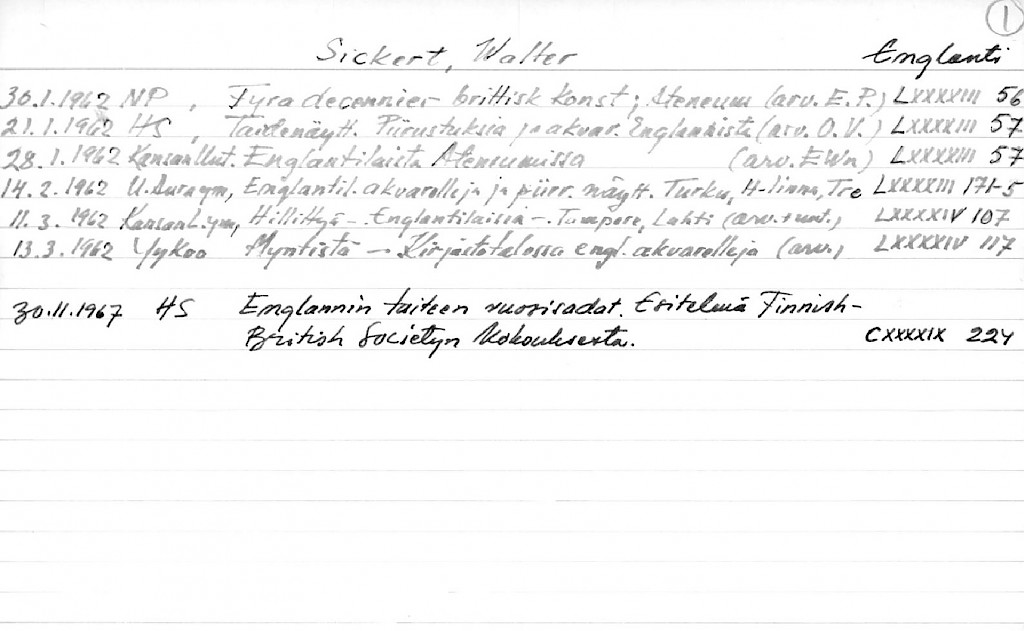 1
Sickert, Walter Englanti
30.1.1962 NP, Fyra decennier brittisk konst; Ateneum (arv. E.P.) LXXXXIII 56
21.1.1962 HS, Taidenäytt. Piirustuksia ja akvar. Englannista (arv. O.V.) LXXXXIII 57
28.1.1962 Kansan Uut. Englantilaista Ateneumissa (arv. EWn) LXXXXIII 57
14.2.1962 U. Englantil. akvarelleja ja piirr. näytt. Turku, H-linna, Tre LXXXXIII 171-5
11.3.1962 KansanL. ym, Hillittyä - Englantilaisia -. Tampere, Lahti (arv. + unt.) LXXXXIV 107
13.3.1962 Yykoo Myntistä - Kirjastotalossa engl. akvarelleja (arv.) LXXXXIV 117
30.11.1967 HS Englannin taiteen vuosisadat. Esitelmä Finnish-
British Societyn kokouksesta. CXXXXIX 224